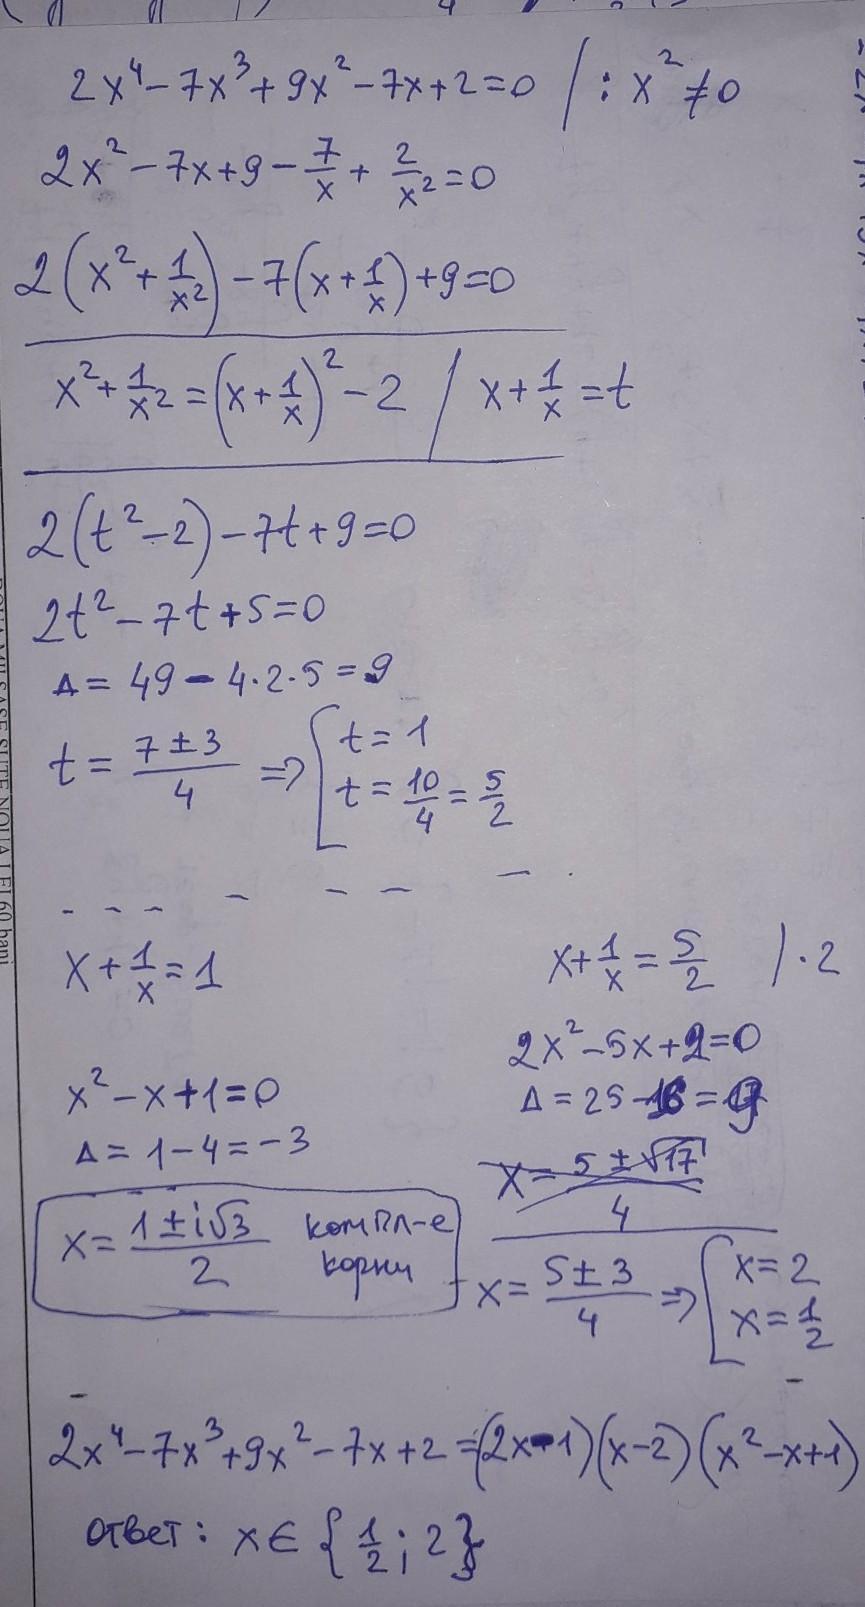 2x⁴-7x³+9x²-7x+2=0 / : x²≠0
2x²-7x+9-7/x+2/x²=0
2(x²+1/x²)-7(x+1/x)+9=0
x²+1/x²=(x+1/x)²-2 / x+1/x=t
2(t²-2)-7t+9=0
2t²-7t+5=0
Δ=49-4·2·5=9
t=(7±3)/4 ⇒ [t=1
t=10/4=5/2
x+1/x=1
x²-x+1=0
Δ=1-4=-3
x=(1±i√3)/2 компл-е
корни
x+1/x=5/2 /·2
2x²-5x+2=0
Δ=25-16=9
x=(5±√17)/4
x=(5±3)/4 ⇒ [x=2
x=1/2
2x⁴-7x³+9x²-7x+2=(2x-1)(x-2)(x²-x+1)
ответ: x∈{1/2; 2}